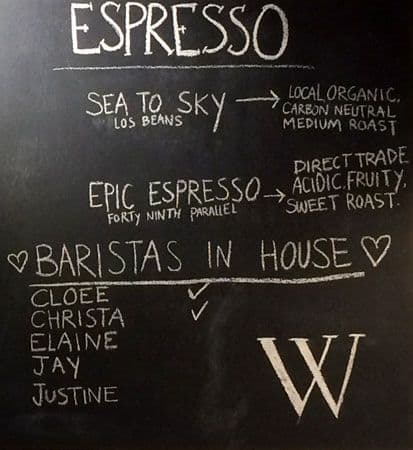 ESPRESSO
SEA TO SKY → LOCAL ORGANIC,
LOS BEANS
CARBON NEUTRAL
MEDIUM ROAST
EPIC ESPRESSO → DIRECT TRADE
FORTY NINTH PARALLEL
ACIDIC. FRUITY,
SWEET ROAST.
♡ BARISTAS IN HOUSE ♡
CLOEE ✓
CHRISTA ✓
ELAINE
JAY
JUSTINE
W